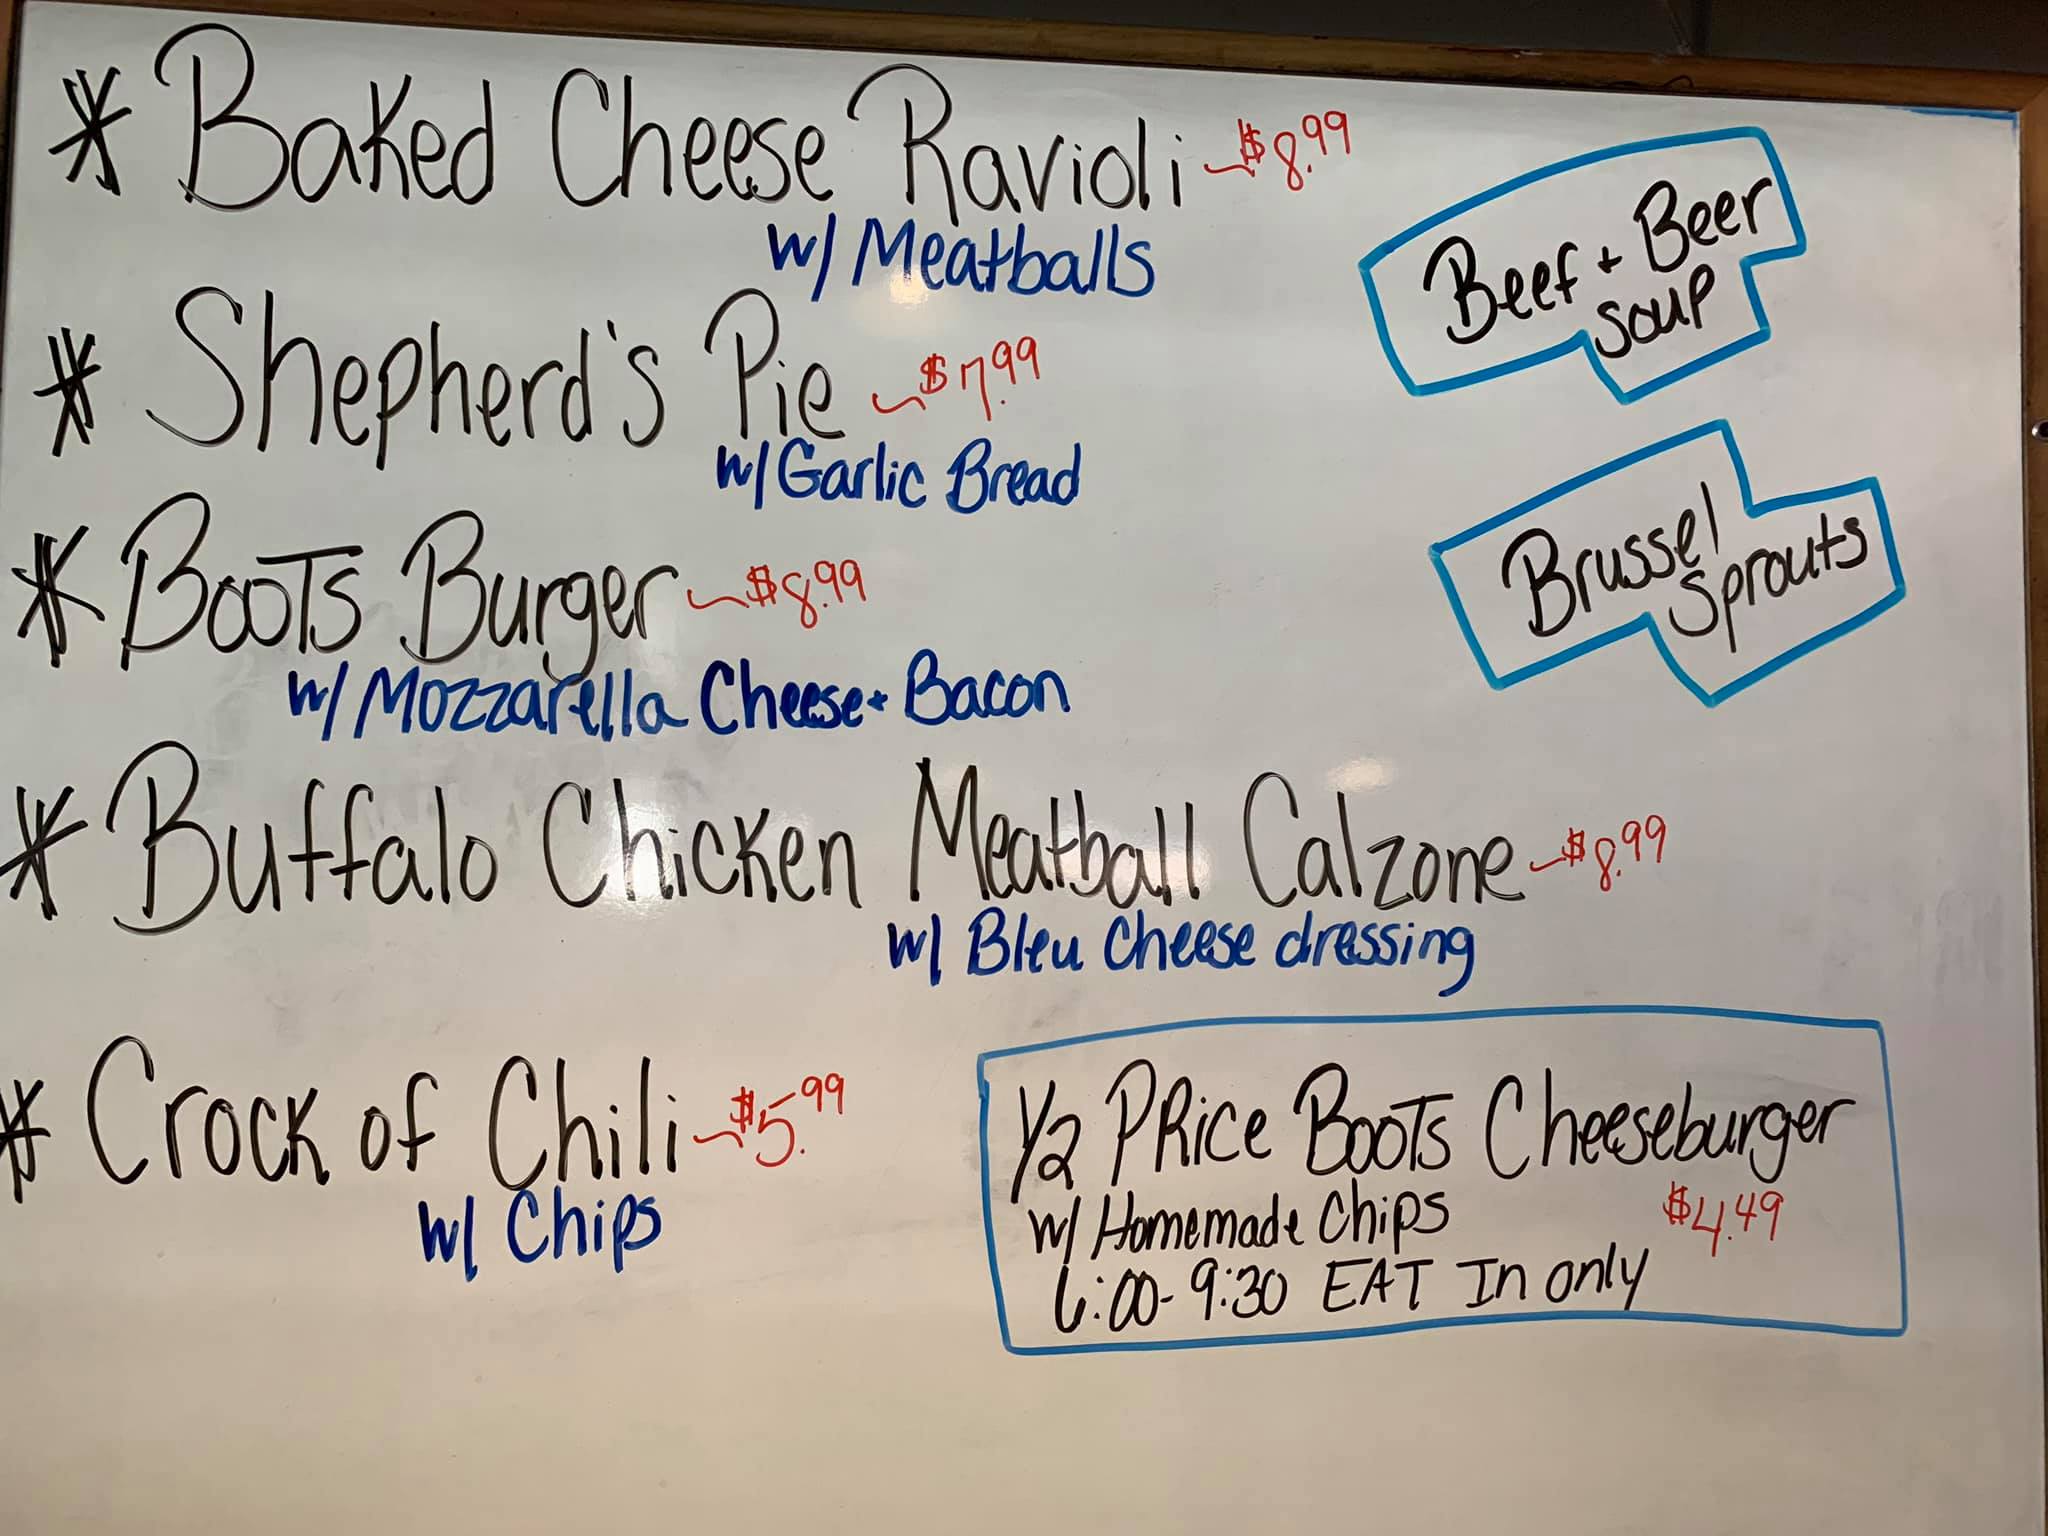 * Baked Cheese Ravioli ~ $8.99
w/ Meatballs
* Shepherd's Pie ~ $7.99
w/ Garlic Bread
* Boots Burger ~ $8.99
w/ Mozzarella Cheese + Bacon
* Buffalo Chicken Meatball Calzone ~ $8.99
w/ Bleu Cheese dressing
* Crock of Chili ~ $5.99
w/ Chips
Beef + Beer
Soup
Brussel
Sprouts
1/2 PRice Boots Cheeseburger
w/ Homemade Chips $4.49
6:00-9:30 EAT In only